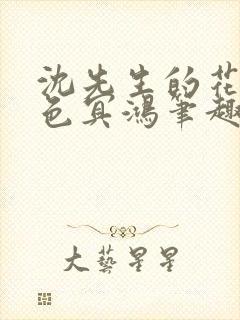 沈先生的花
色冥鴻筆趣
大藝星星